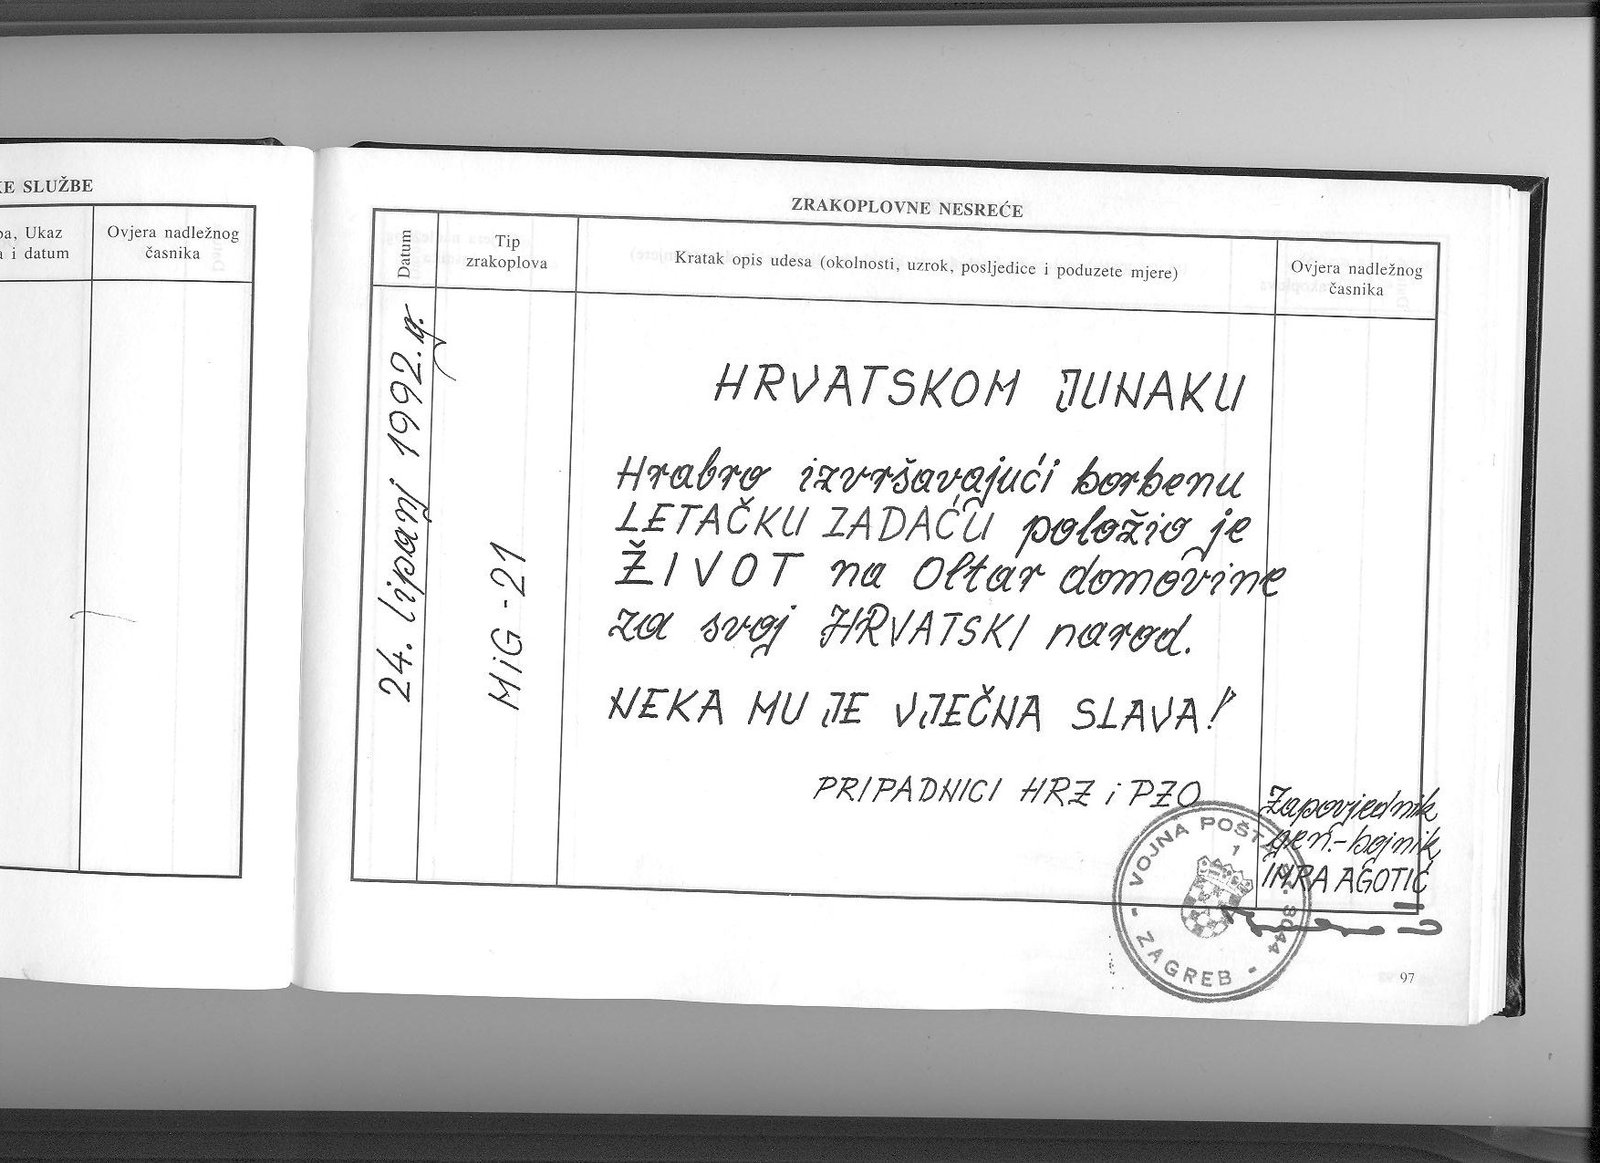 KE SLUŽBE
ba, Ukaz
a i datum
Ovjera nadležnog
časnika
ZRAKOPLOVNE NESREĆE
Datum
Tip
zrakoplova
Kratak opis udesa (okolnosti, uzrok, posljedice i poduzete mjere)
Ovjera nadležnog
časnika
24. lipanj 1992. g.
MiG-21
HRVATSKOM JUNAKU
Hrabro izvršavajući borbenu
LETAČKU ZADAĆU položio je
ŽIVOT na Oltar domovine
za svoj HRVATSKI narod.
NEKA MU JE VJEČNA SLAVA!
PRIPADNICI HRZ i PZO
Zapovjednik
gen.-bojnik
IMRA AGOTIĆ
VOJNA POŠTA
8044
1
- ZAGREB -
97